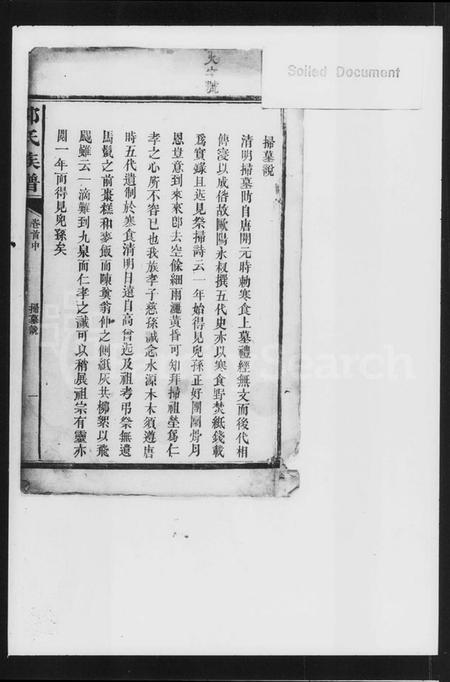 Soiled Document
掃墓說
清明掃墓昉自唐開元時勅寒食上墓禮經無文而後代相
傳寖以成俗故歐陽永叔撰五代史亦以寒食野焚紙錢載
爲實錄且迄見祭掃詩云一年始得見兒孫正好團圞骨月
恩豈意到來來卽去空餘細雨灑黃昏可知拜掃祖塋爲仁
孝之心所不容已也我族孝子慈孫誠念水源木本須遵唐
時五代遺制於寒食清明日遠自高曾迄及祖考弔祭無遺
馬鬣之前棗糕和麥飯而陳翁仲之側紙灰共柳絮以飛
颺雖云一滴難到九泉而仁孝之誠可以稍展祖宗有靈亦
閱一年而得見兒孫矣
氏族譜
卷首中
掃墓說
一